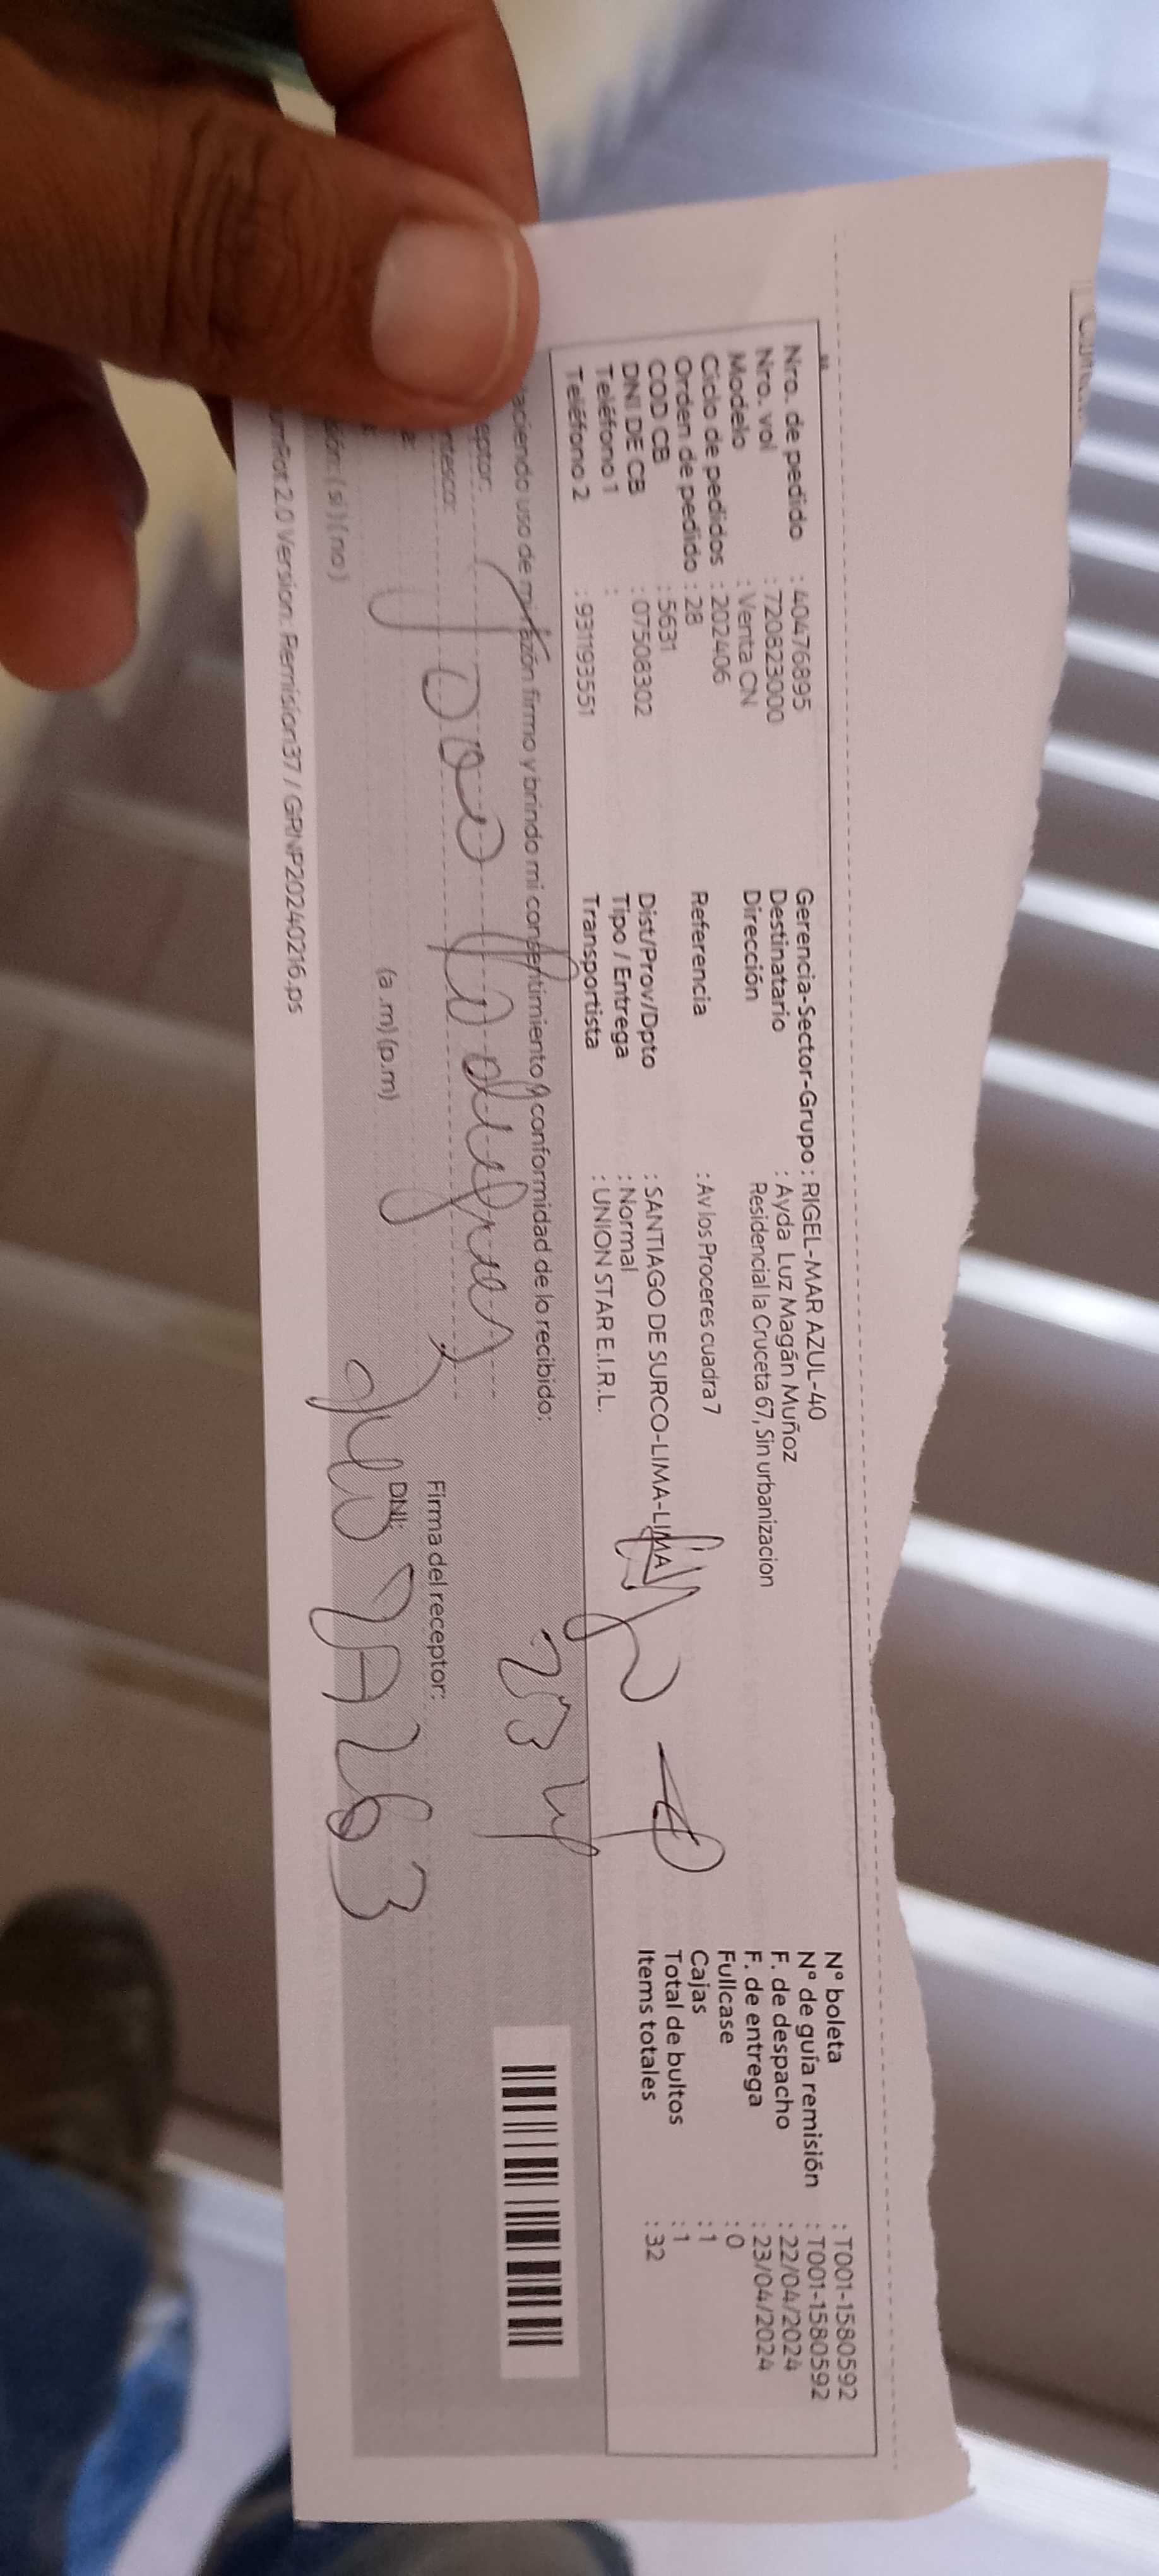 Nro. de pedido : 40476895
Nro. vol : 720823000
Modelo : Venta CN
Ciclo de pedidos : 202406
Orden de pedido : 28
COD CB : 5631
DNI DE CB : 07508302
Teléfono 1 :
Teléfono 2 : 931193551
Gerencia-Sector-Grupo : RIGEL-MAR AZUL-40
Destinatario : Ayda Luz Magán Muñoz
Dirección Residencial la Cruceta 67, Sin urbanizacion
Referencia : Av los Proceres cuadra 7
Dist/Prov/Dpto : SANTIAGO DE SURCO-LIMA-LIMA
Tipo / Entrega : Normal
Transportista : UNION STAR E.I.R.L.
N° boleta : T001-1580592
N° de guía remisión : T001-1580592
F. de despacho : 22/04/2024
F. de entrega : 23/04/2024
Fullcase : 0
Cajas : 1
Total de bultos : 1
Items totales : 32
aciendo uso de mi razón firmo y brindo mi consentimiento y conformidad de lo recibido:
eptor:
ntesco:
Firma del receptor:
(a.m) (p.m)
DNI:
sión: ( si ) ( no )
2.0 Version: Remision37 / GRNP20240216.ps